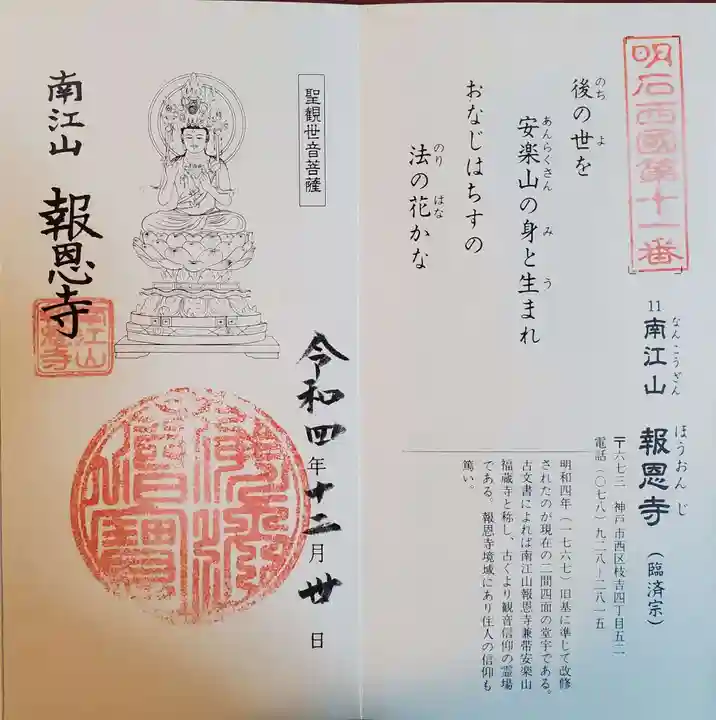 明石西國第十一番
11 南江山 報恩寺（臨済宗）
なんこうざん ほうおんじ
〒六七三 神戸市西区枝吉四丁目五二
電話（〇七八）九二八ー二八一五
後の世を
のち よ
安楽山の身と生まれ
あんらくさん み う
おなじはちすの
法の花かな
のり ばな
明和四年（一七六七）旧基に準じて改修
されたのが現在の二間四面の堂宇である。
古文書によれば南江山報恩寺兼帯安楽山
福蔵寺と称し、古くより観音信仰の霊場
である。報恩寺境域にあり住人の信仰も
篤い。
聖観世音菩薩
令和四年十二月廿日
南江山 報恩寺
南江山
報恩寺